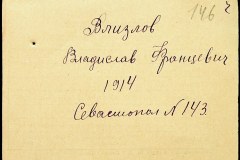 146
Влизлов
Владислав Францевич
1914
Севастопол N 143.